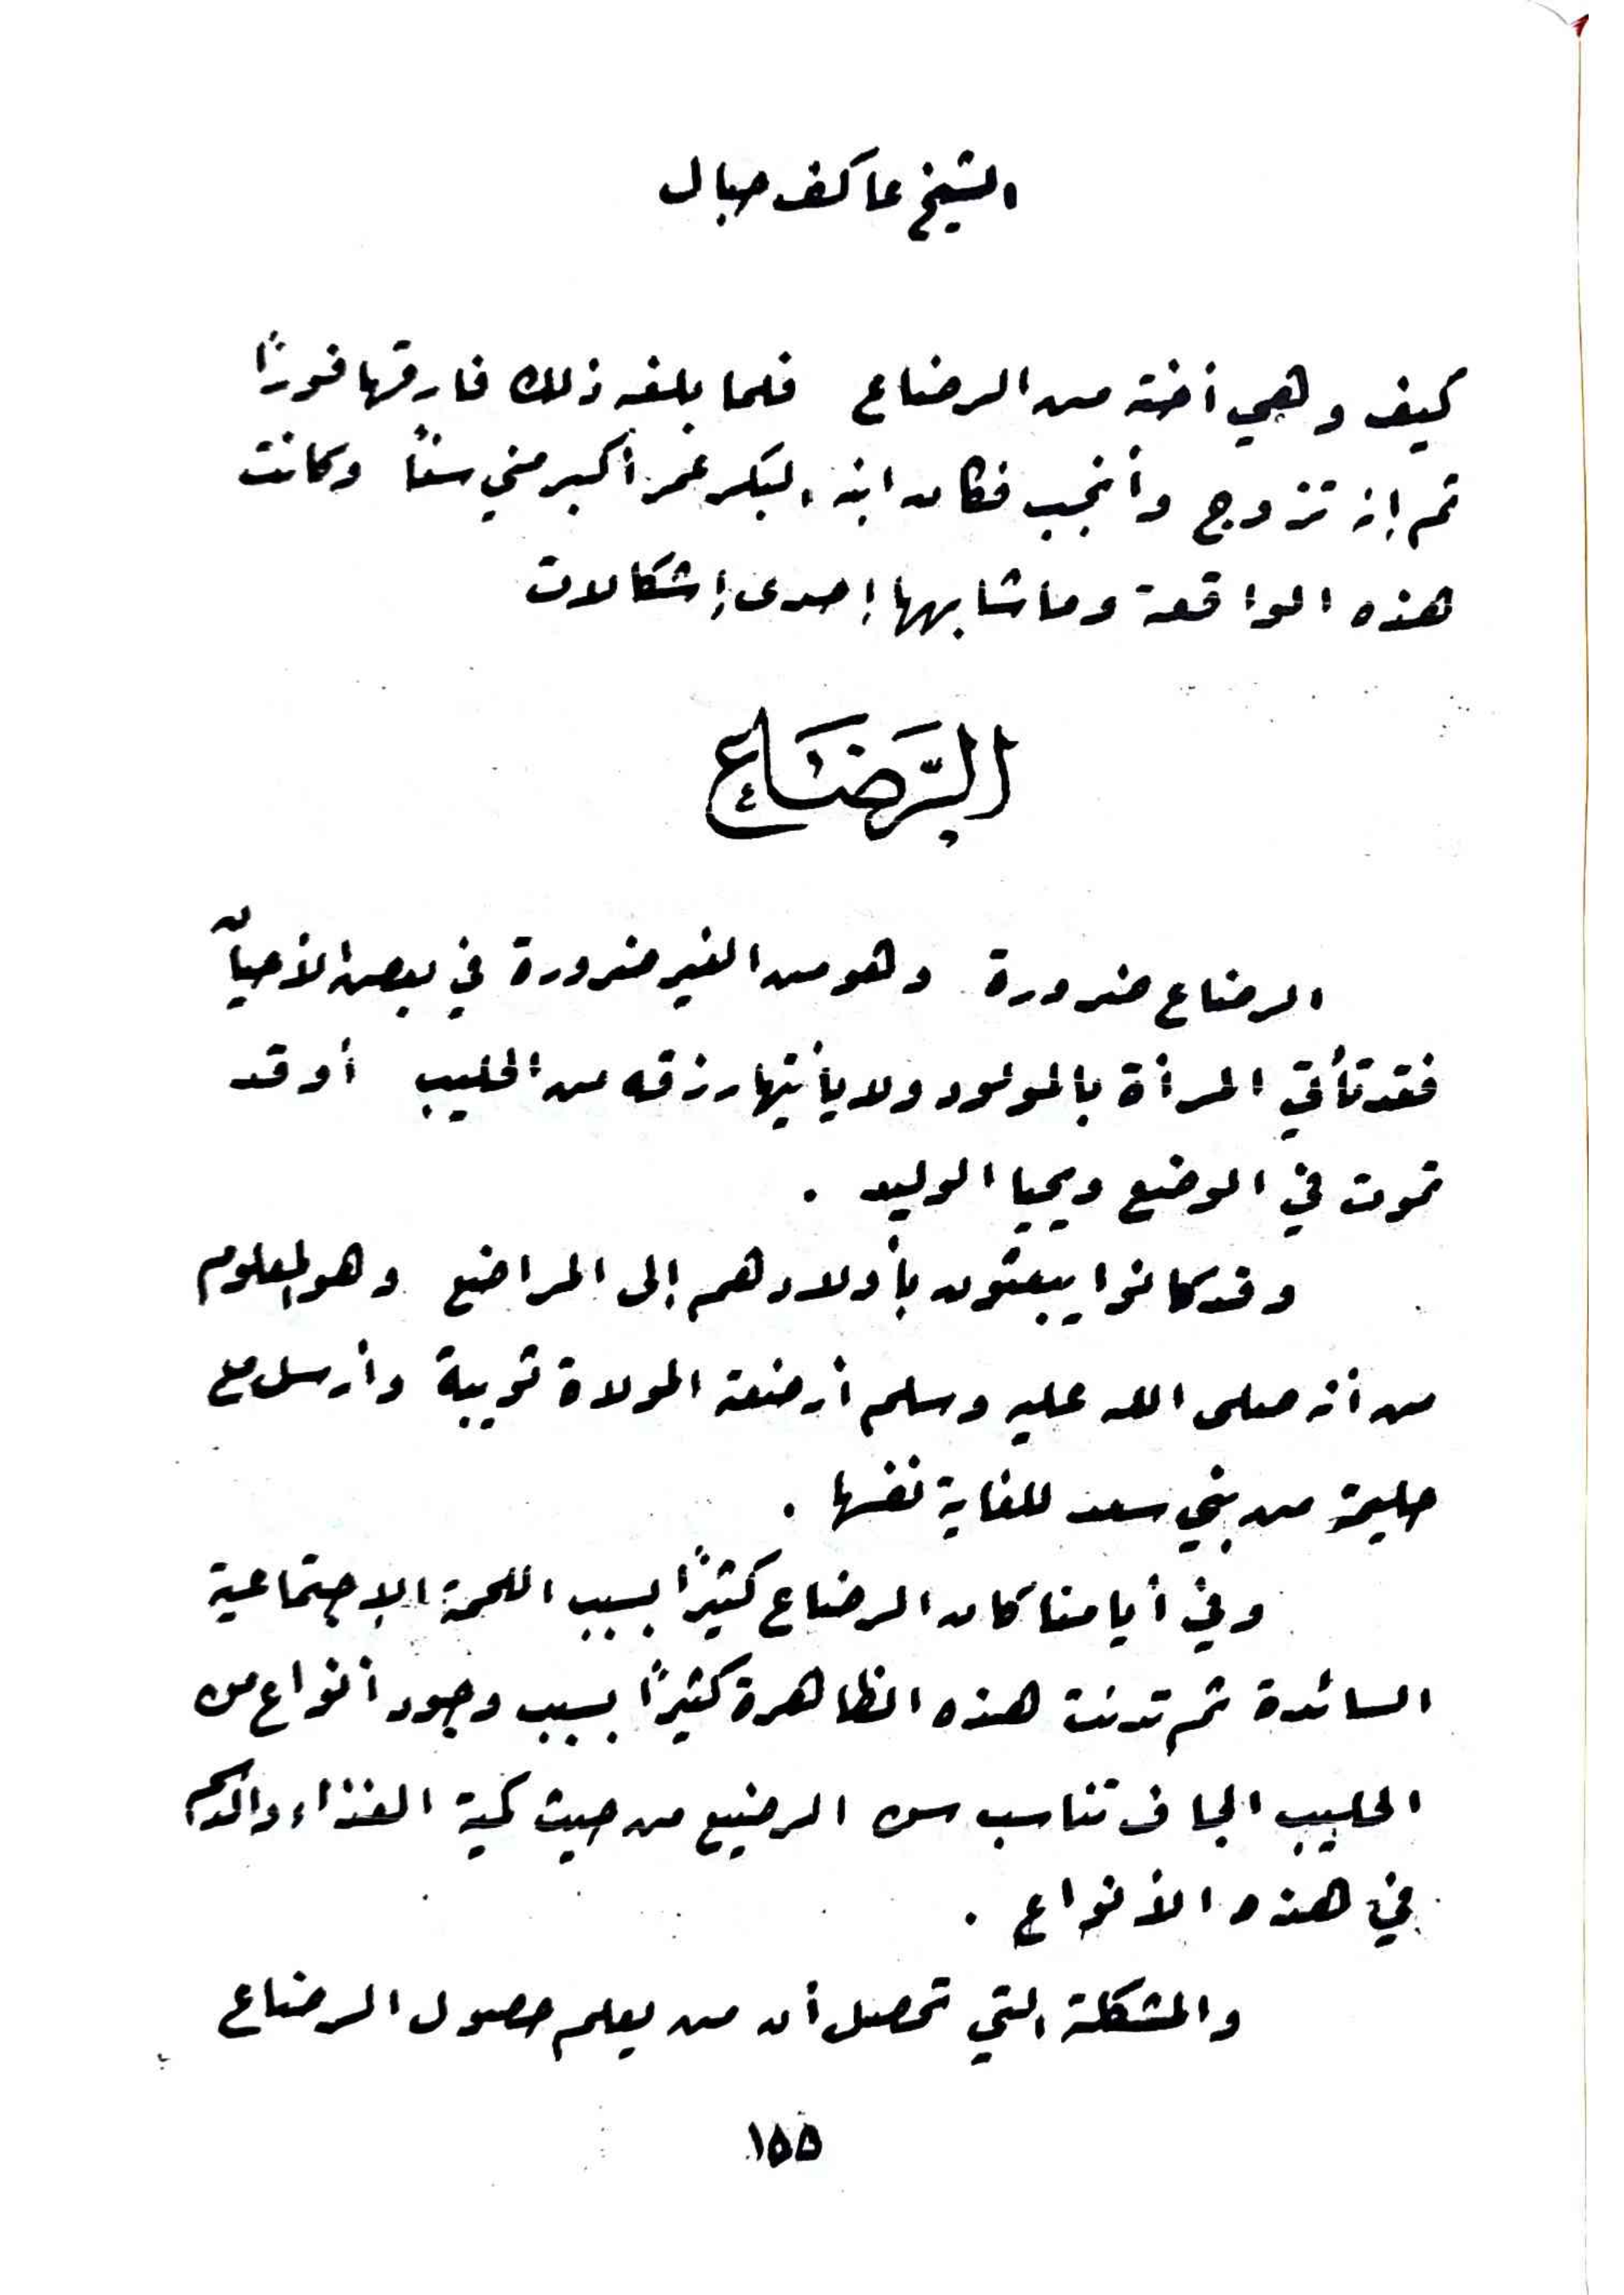 الشيخ عاكف حبال
كيف وهي أخته من الرضاع فلما بلغه ذلك فارقها فوراً
ثم إنه تزوج وأنجب فكان ابنه البكر عمر أكبر مني سناً وكانت
هذه الواقعة وما شابهها إحدى إشكالات
الرَّضَاع
الرضاع ضرورة وهو من الغير ضرورة في بعض الأحيان
فقد تأتي المرأة بالمولود ولا يأتيها رزقه من الحليب أو قد
تموت في الوضع ويحيا الوليد .
وقد كانوا يبعثون بأولادهم إلى المراضع وهو المعلوم
من أنه صلى الله عليه وسلم أرضعته المولاة ثويبة وأرسل مع
حليمة من بني سعد للغاية نفسها .
وفي أيامنا كان الرضاع كثيراً بسبب اللحمة الاجتماعية
السائدة ثم تدنت هذه الظاهرة كثيراً بسبب وجود أنواع من
الحليب الجاف تناسب سن الرضيع من حيث كمية الغذاء والدسم
في هذه الأنواع .
والمشكلة التي تحصل أن من يعلم حصول الرضاع
١٥٥